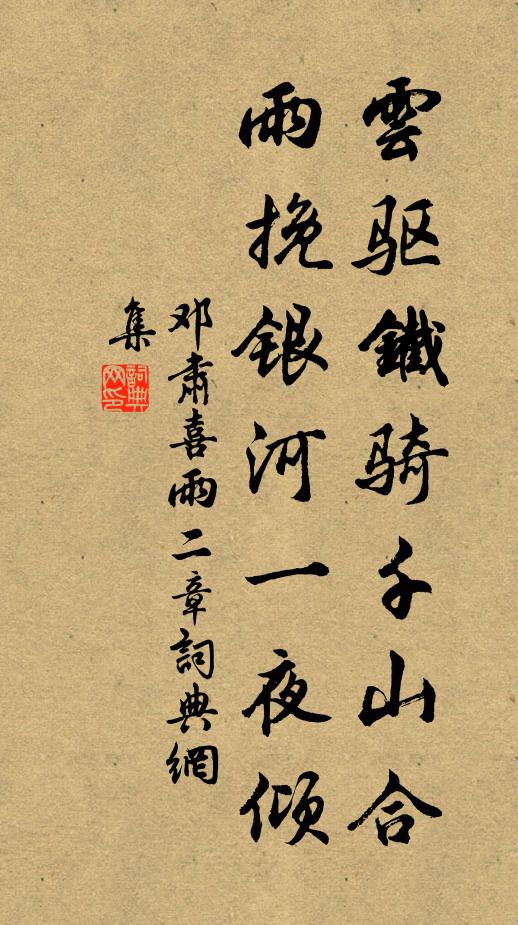 雲驱鐵骑千山合
雨挽银河一夜倾
邓肃喜雨二章詞典網
集
詞典網印